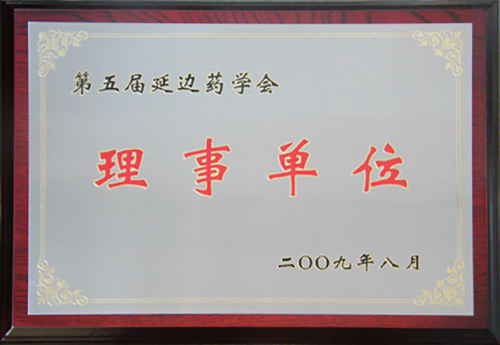 第五届延边药学会
理事单位
二〇〇九年八月